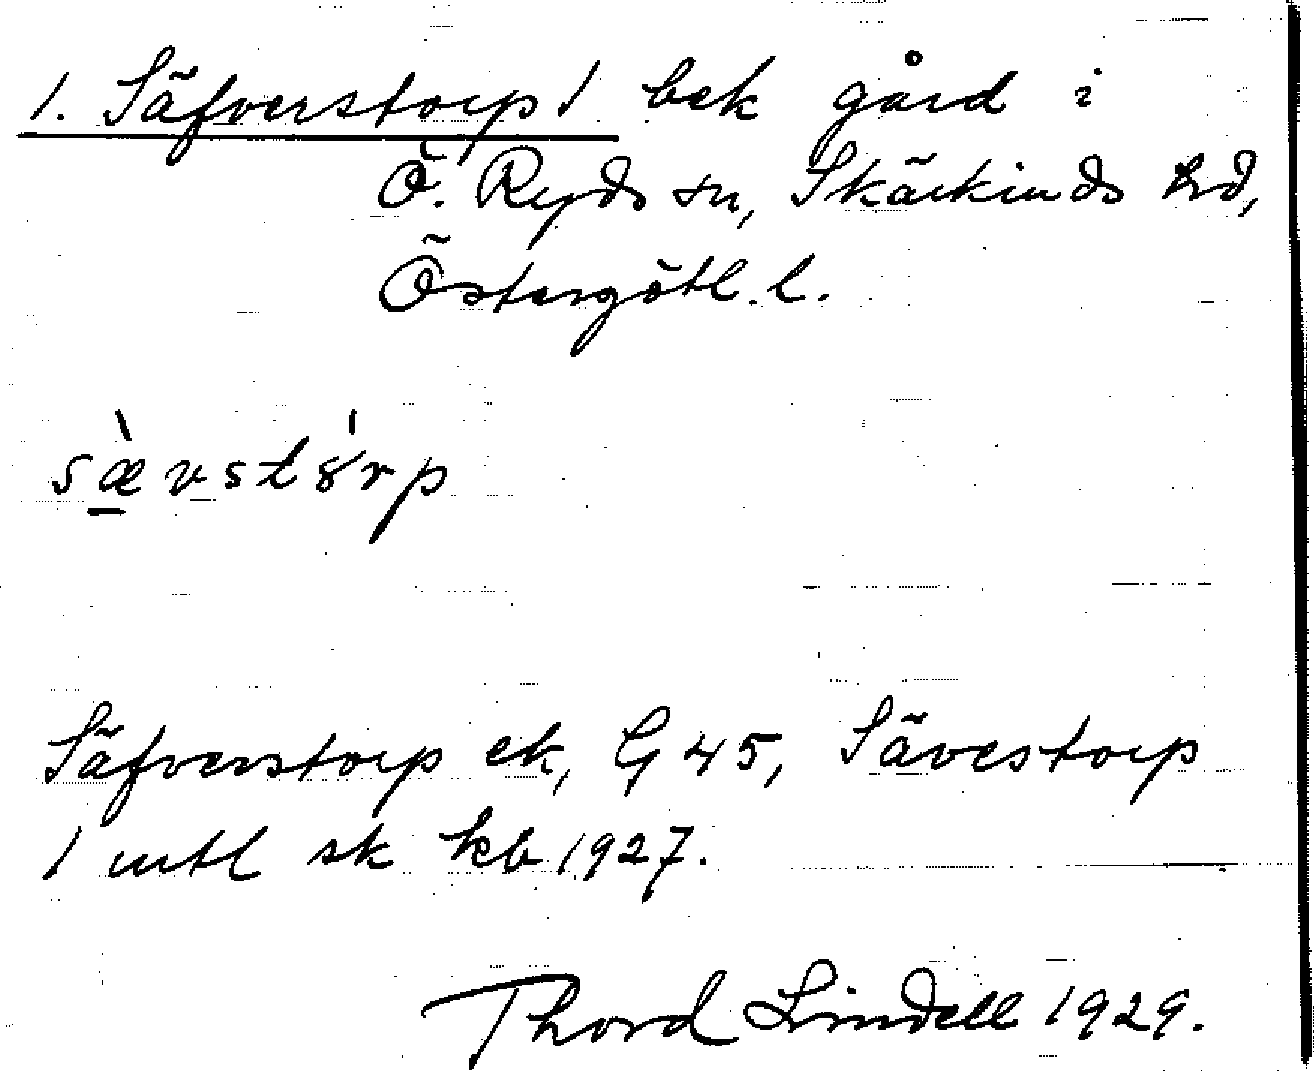 1. Säfverstorp 1 bek gård i
Ö. Ryds sn, Skärkinds hd,
Östergötl. l.
sæ̀vstȣ́rp
Säfverstorp ek, G 45, Sävestorp
1 mtl sk kb 1927.
Thord Lindell 1929.